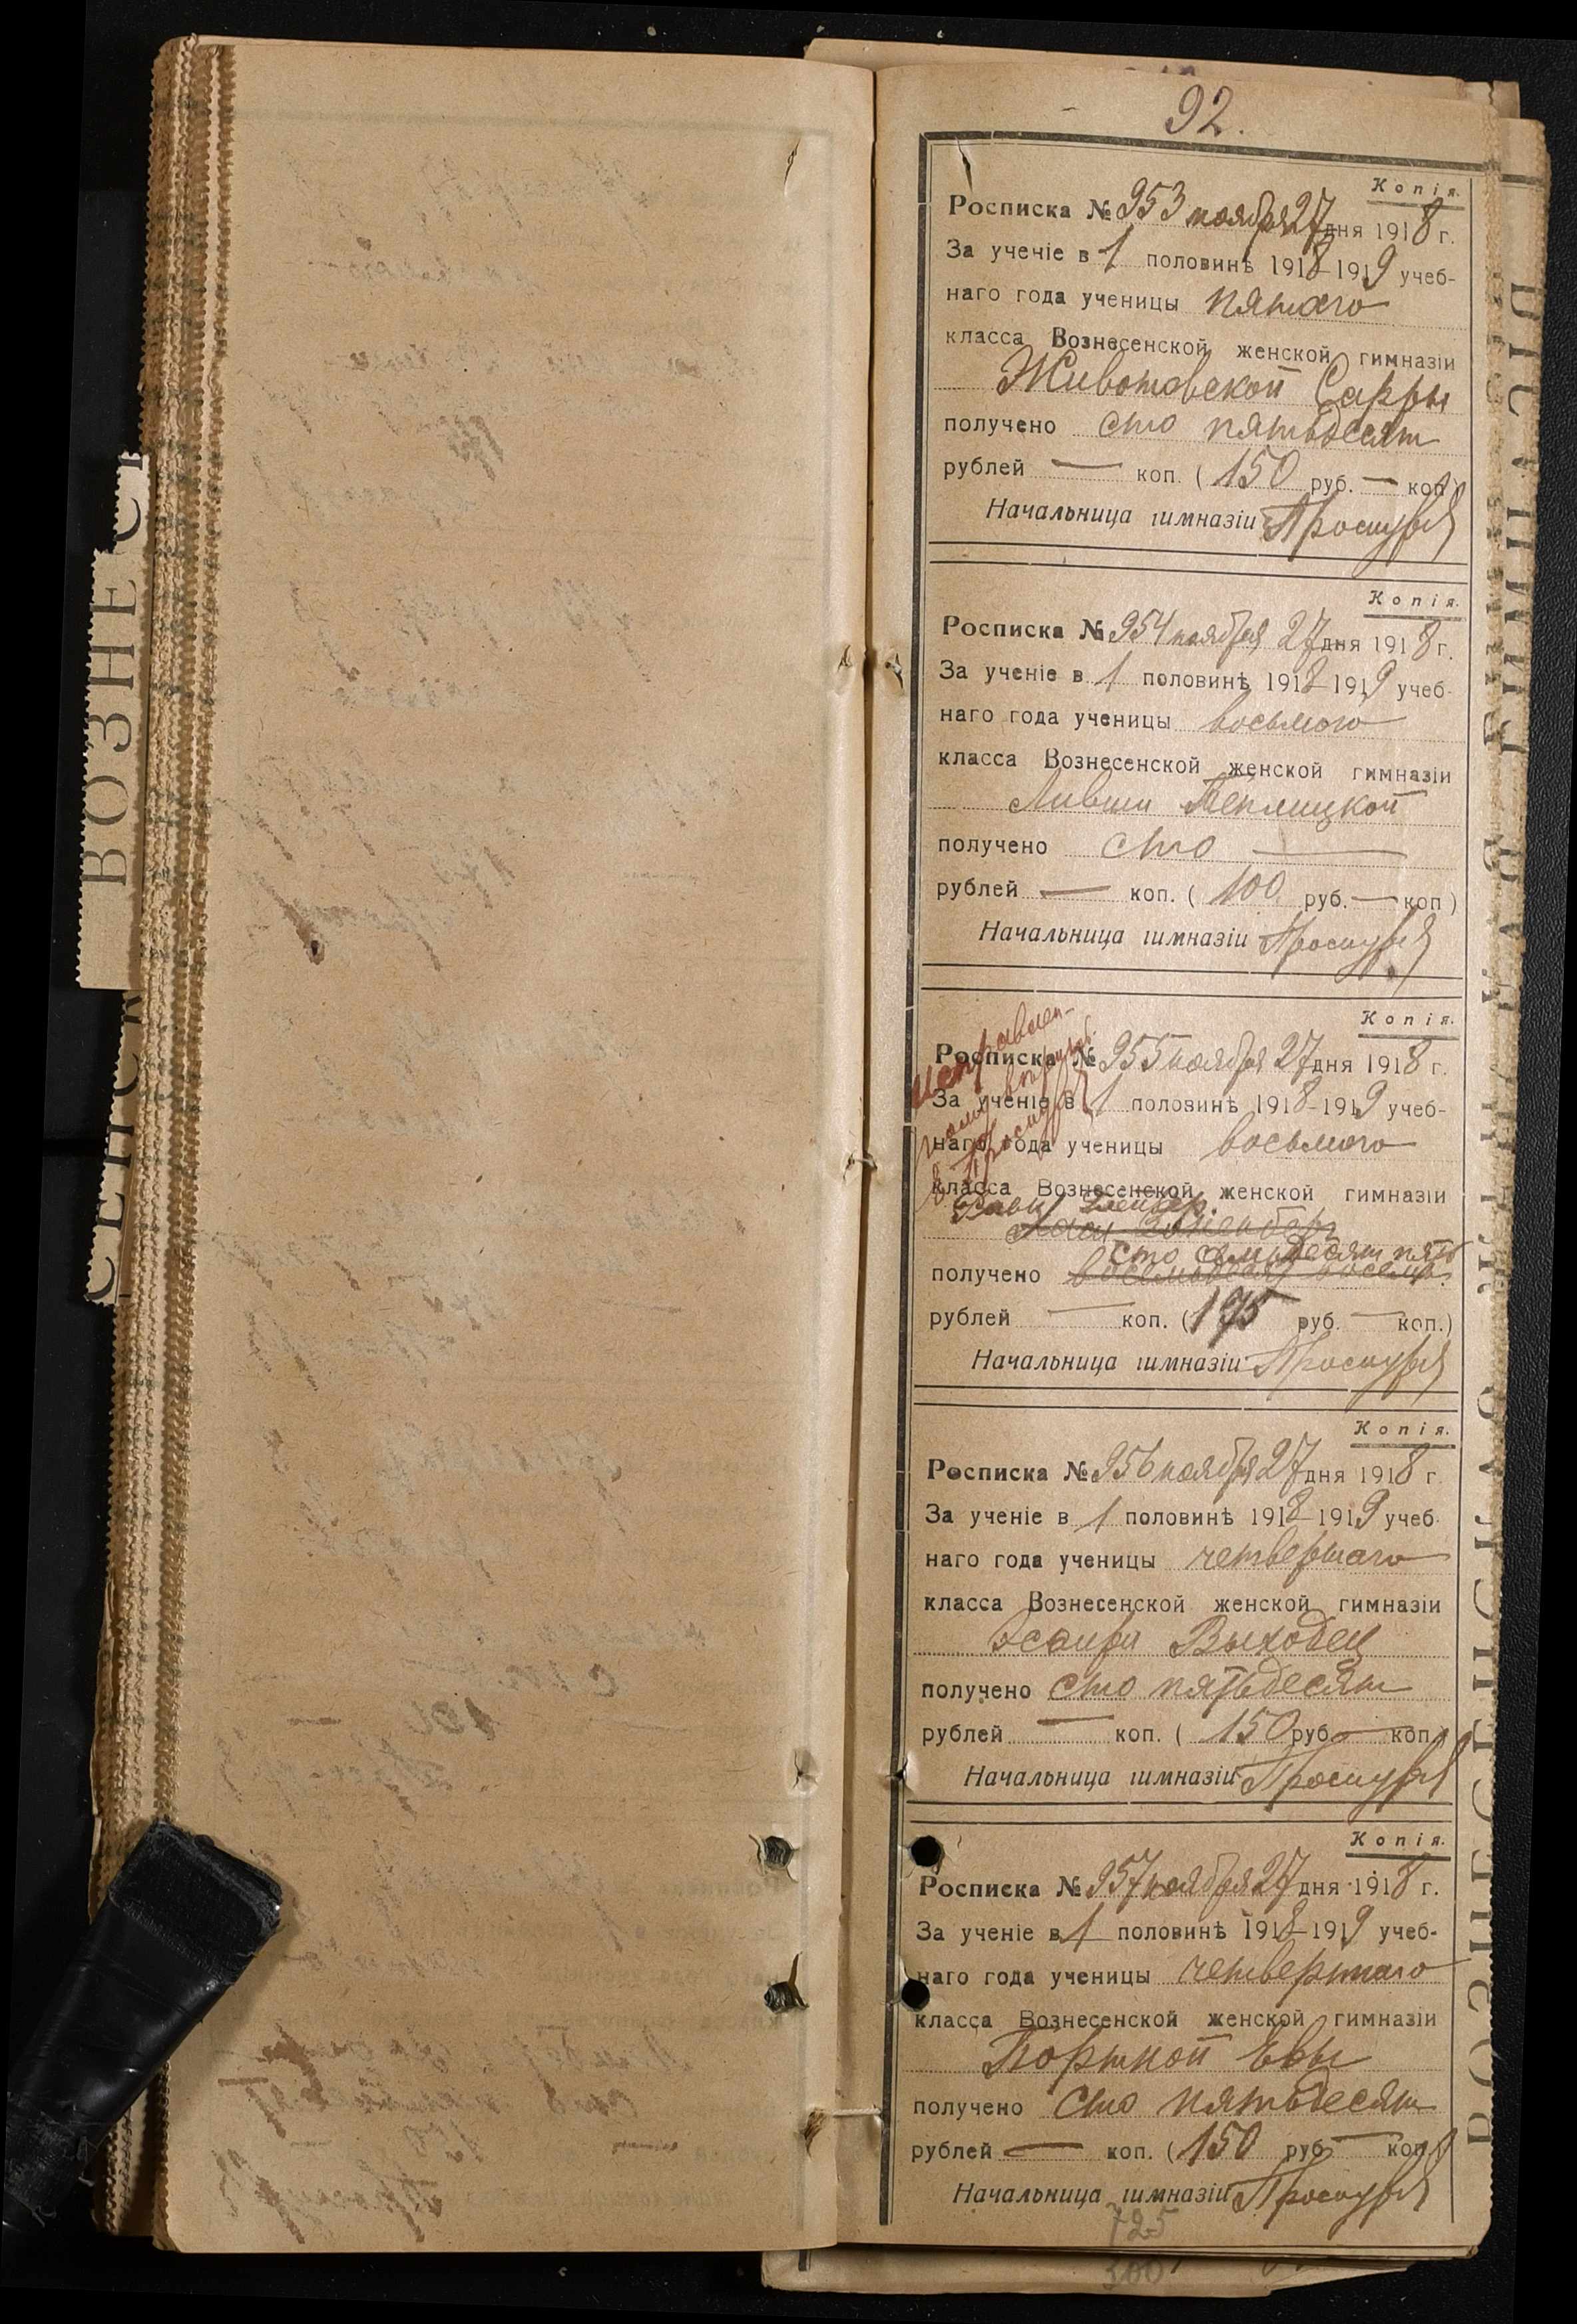 92.
Копія.
Росписка № 953 ноября 27 дня 1918 г.
За ученіе в 1 половинѣ 1918-1919 учеб-
наго года ученицы пятаго
класса Вознесенской женской гимназіи
Животовской Сарры
получено сто пятьдесят
рублей — коп. (150 руб. — коп)
Начальница гимназіи
Копія.
Росписка № 954 ноября 27 дня 1918 г.
За ученіе в 1 половинѣ 1918-1919 учеб-
наго года ученицы восьмого
класса Вознесенской женской гимназіи
Ливши Теплицкой
получено сто —
рублей — коп. (100 руб. — коп)
Начальница гимназіи
Копія.
Росписка № 955 ноября 27 дня 1918 г.
За ученіе в 1 половинѣ 1918-1919 учеб-
наго года ученицы восьмого
класса Вознесенской женской гимназіи
сто семьдесят пять
получено восемьдесят восемь
рублей — коп. (175 руб. — коп.)
Начальница гимназіи
Копія.
Росписка № 956 ноября 27 дня 1918 г.
За ученіе в 1 половинѣ 1918-1919 учеб-
наго года ученицы четвертаго
класса Вознесенской женской гимназіи
Эсфири Выходец
получено сто пятьдесят
рублей — коп. (150 руб. — коп.)
Начальница гимназіи
Копія.
Росписка № 957 ноября 27 дня 1918 г.
За ученіе в 1 половинѣ 1918-1919 учеб-
наго года ученицы четвертаго
класса Вознесенской женской гимназіи
Портной Евы
получено сто пятьдесят
рублей — коп. (150 руб. — коп.)
Начальница гимназіи
725
300
ВОЗНЕС
СЕНСК